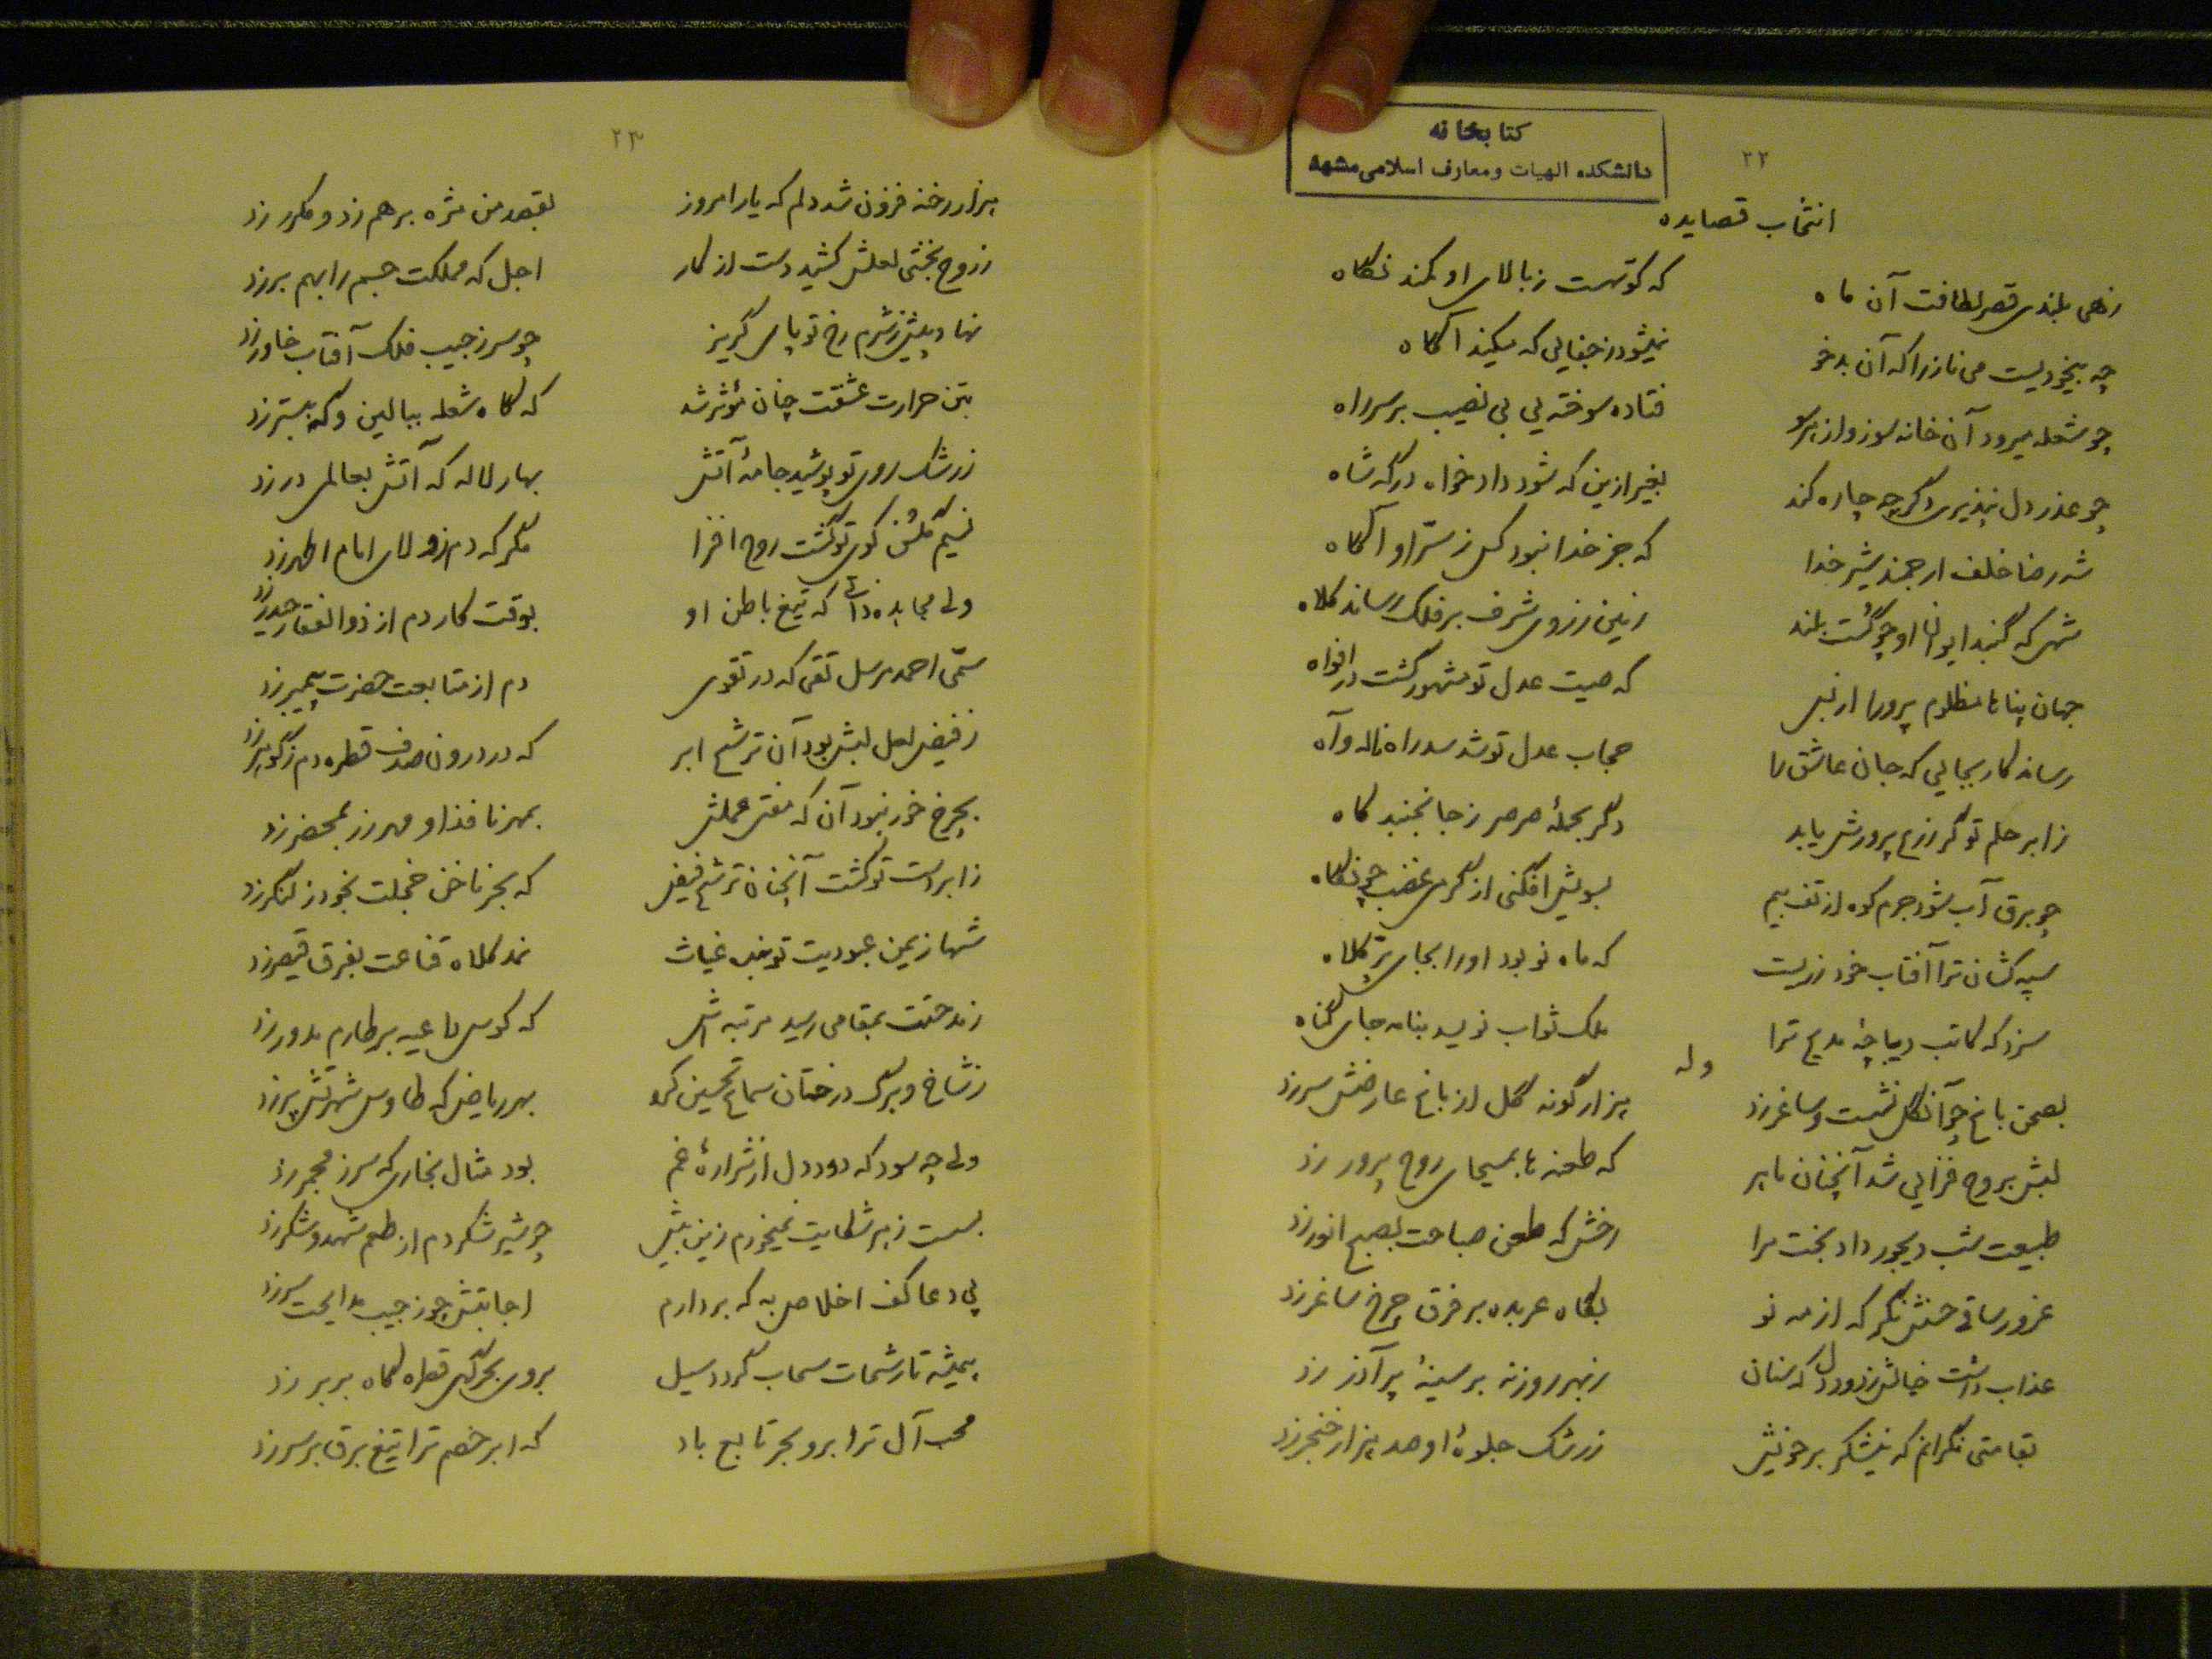 ۲۲
کتابخانه
دانشکده الهیات ومعارف اسلامی مشهد
انتخاب قصایده
زهی بلندی قصر لطافت آن ماه که کوتهست ز بالای او کمند نگاه
چه بیخودیست می ناز را که آن بدخو نمیشود ز جفایی که میکند آگاه
چو شعله میرود آن خانه سوز و از هر سو فتاده سوخته یی بی نصیب بر سر راه
چو عذر دل نپذیری دگر چه چاره کند بغیر ازین که شود دادخواه درگه شاه
شه رضا خلف ارجمند شیر خدا که جز خدا نبود کس ز سرّ او آگاه
شهی که گنبد ایوان او چو گشت بلند زمین ز روی شرف بر فلک رساند کلاه
جهان پناها مظلوم پرورا از بس که صیت عدل تو مشهور گشت در افواه
رساند کار بجایی که جان عاشق را حجاب عدل تو شد سد راه ناله و آه
ز ابر حلم تو گر زرع پرورش یابد دگر بحملهٔ صرصر ز جا نجنبد کاه
چو برق آب شود جرم کوه از تف بیم بسویش افگنی از گرمی غضب چو نگاه
سپه کشان ترا آفتاب خود زریست که ماه نو بود او را بجای پرّ کلاه
سزد که کاتب دیباچهٔ مدیح ترا ملک ثواب نویسد بنامه جای گناه
وله
بصحن باغ چو آن گل نشست و ساغر زد هزار گونه گل از باغ عارضش سر زد
لبش بروح فزایی شد آنچنان ماهر که طعنه ها بمسیحای روح پرور زد
طبیعت شب دیجور داد بخت مرا رخش که طعن صباحت بصبح انور زد
غرور ساقی حسنش نگر که از مه نو بگاه عربده بر فرق چرخ ساغر زد
عذاب داشت خیالش ز دود دل که سنان ز بهر روزنه بر سینهٔ پر آذر زد
بقامتی نگرانم که نیشکر بر خویش ز رشک جلوهٔ او صد هزار خنجر زد
۲۳
هزار رخنه فزون شد دلم که یار امروز بقصد من مژه بر هم زد و مکرر زد
ز روح بخشی لعلش کشید دست از کار اجل که مملکت جسم را بهم بر زد
نهاد پیش ز شرم رخ تو پای گریز چو سر ز جیب فلک آفتاب خاور زد
بتن حرارت عشقت چنان مؤثر شد که گاه شعله ببالین و گه ببستر زد
ز رشک روی تو پوشید جامهٔ آتش بهار لاله که آتش بعالمی در زد
نسیم گلشن کوی تو گشت روح افزا مگر که دم ز ولای امام اطهر زد
ولی مجاهد ذاتی که تیغ باطن او بوقت کار دم از ذوالفقار حیدر زد
سمّی احمد مرسل تقی که در تقوی دم از متابعت حضرت پیمبر زد
ز فیض لعل لبش بود آن ترشح ابر که در درون صدف قطره دم ز گوهر زد
بچرخ خور نبود آن که مفتی عملش بمهر نافذ او مهر زر بمحضر زد
ز ابر دست تو گشت آنچنان ترشح فیض که بحر ناخن خجلت بخود ز لنگر زد
شها ز یمن عبودیت تو غیاث نمد کلاه قناعت بفرق قیصر زد
ز مدحتت بمقامی رسید مرتبه اش که کوس داعیه بر طارم مدور زد
ز شاخ و برگ درختان سماع تحسین کرد بهر ریاض که طاوس شهرتش پر زد
ولی چه سود که دود دل از شرارهٔ غم بود مثال بخاری که سر ز مجمر زد
بست زهر شکایت نمیخورم زین بیش چو شیر شکر دم از طعم شهد و شکر زد
پی دعا کف اخلاص به که بردارم اجابتش چو ز جیب مدایحت سر زد
همیشه تا رشحات سحاب گردد سیل بروی بحر گهی قطره گاه بر بر زد
محب آل ترا بر و بحر تابع باد که ابر خصم ترا تیغ برق بر سر زد